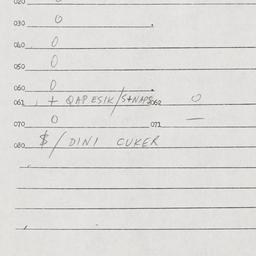 020
030 0
040 0
050 0
060 0
061 + QAPESIK/S+NAPS 062 0
070 0 071 —
080 $/DINI CUKER